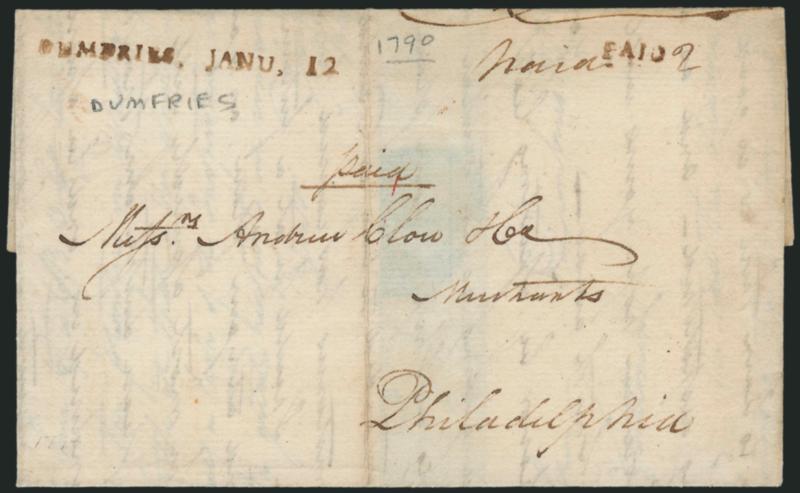 DUMFRIES, JANU, 12
1790
paid PAID 2
DUMFRIES
paid
Mess.rs Andrew Clow & Co
Merchants
Philadelphia